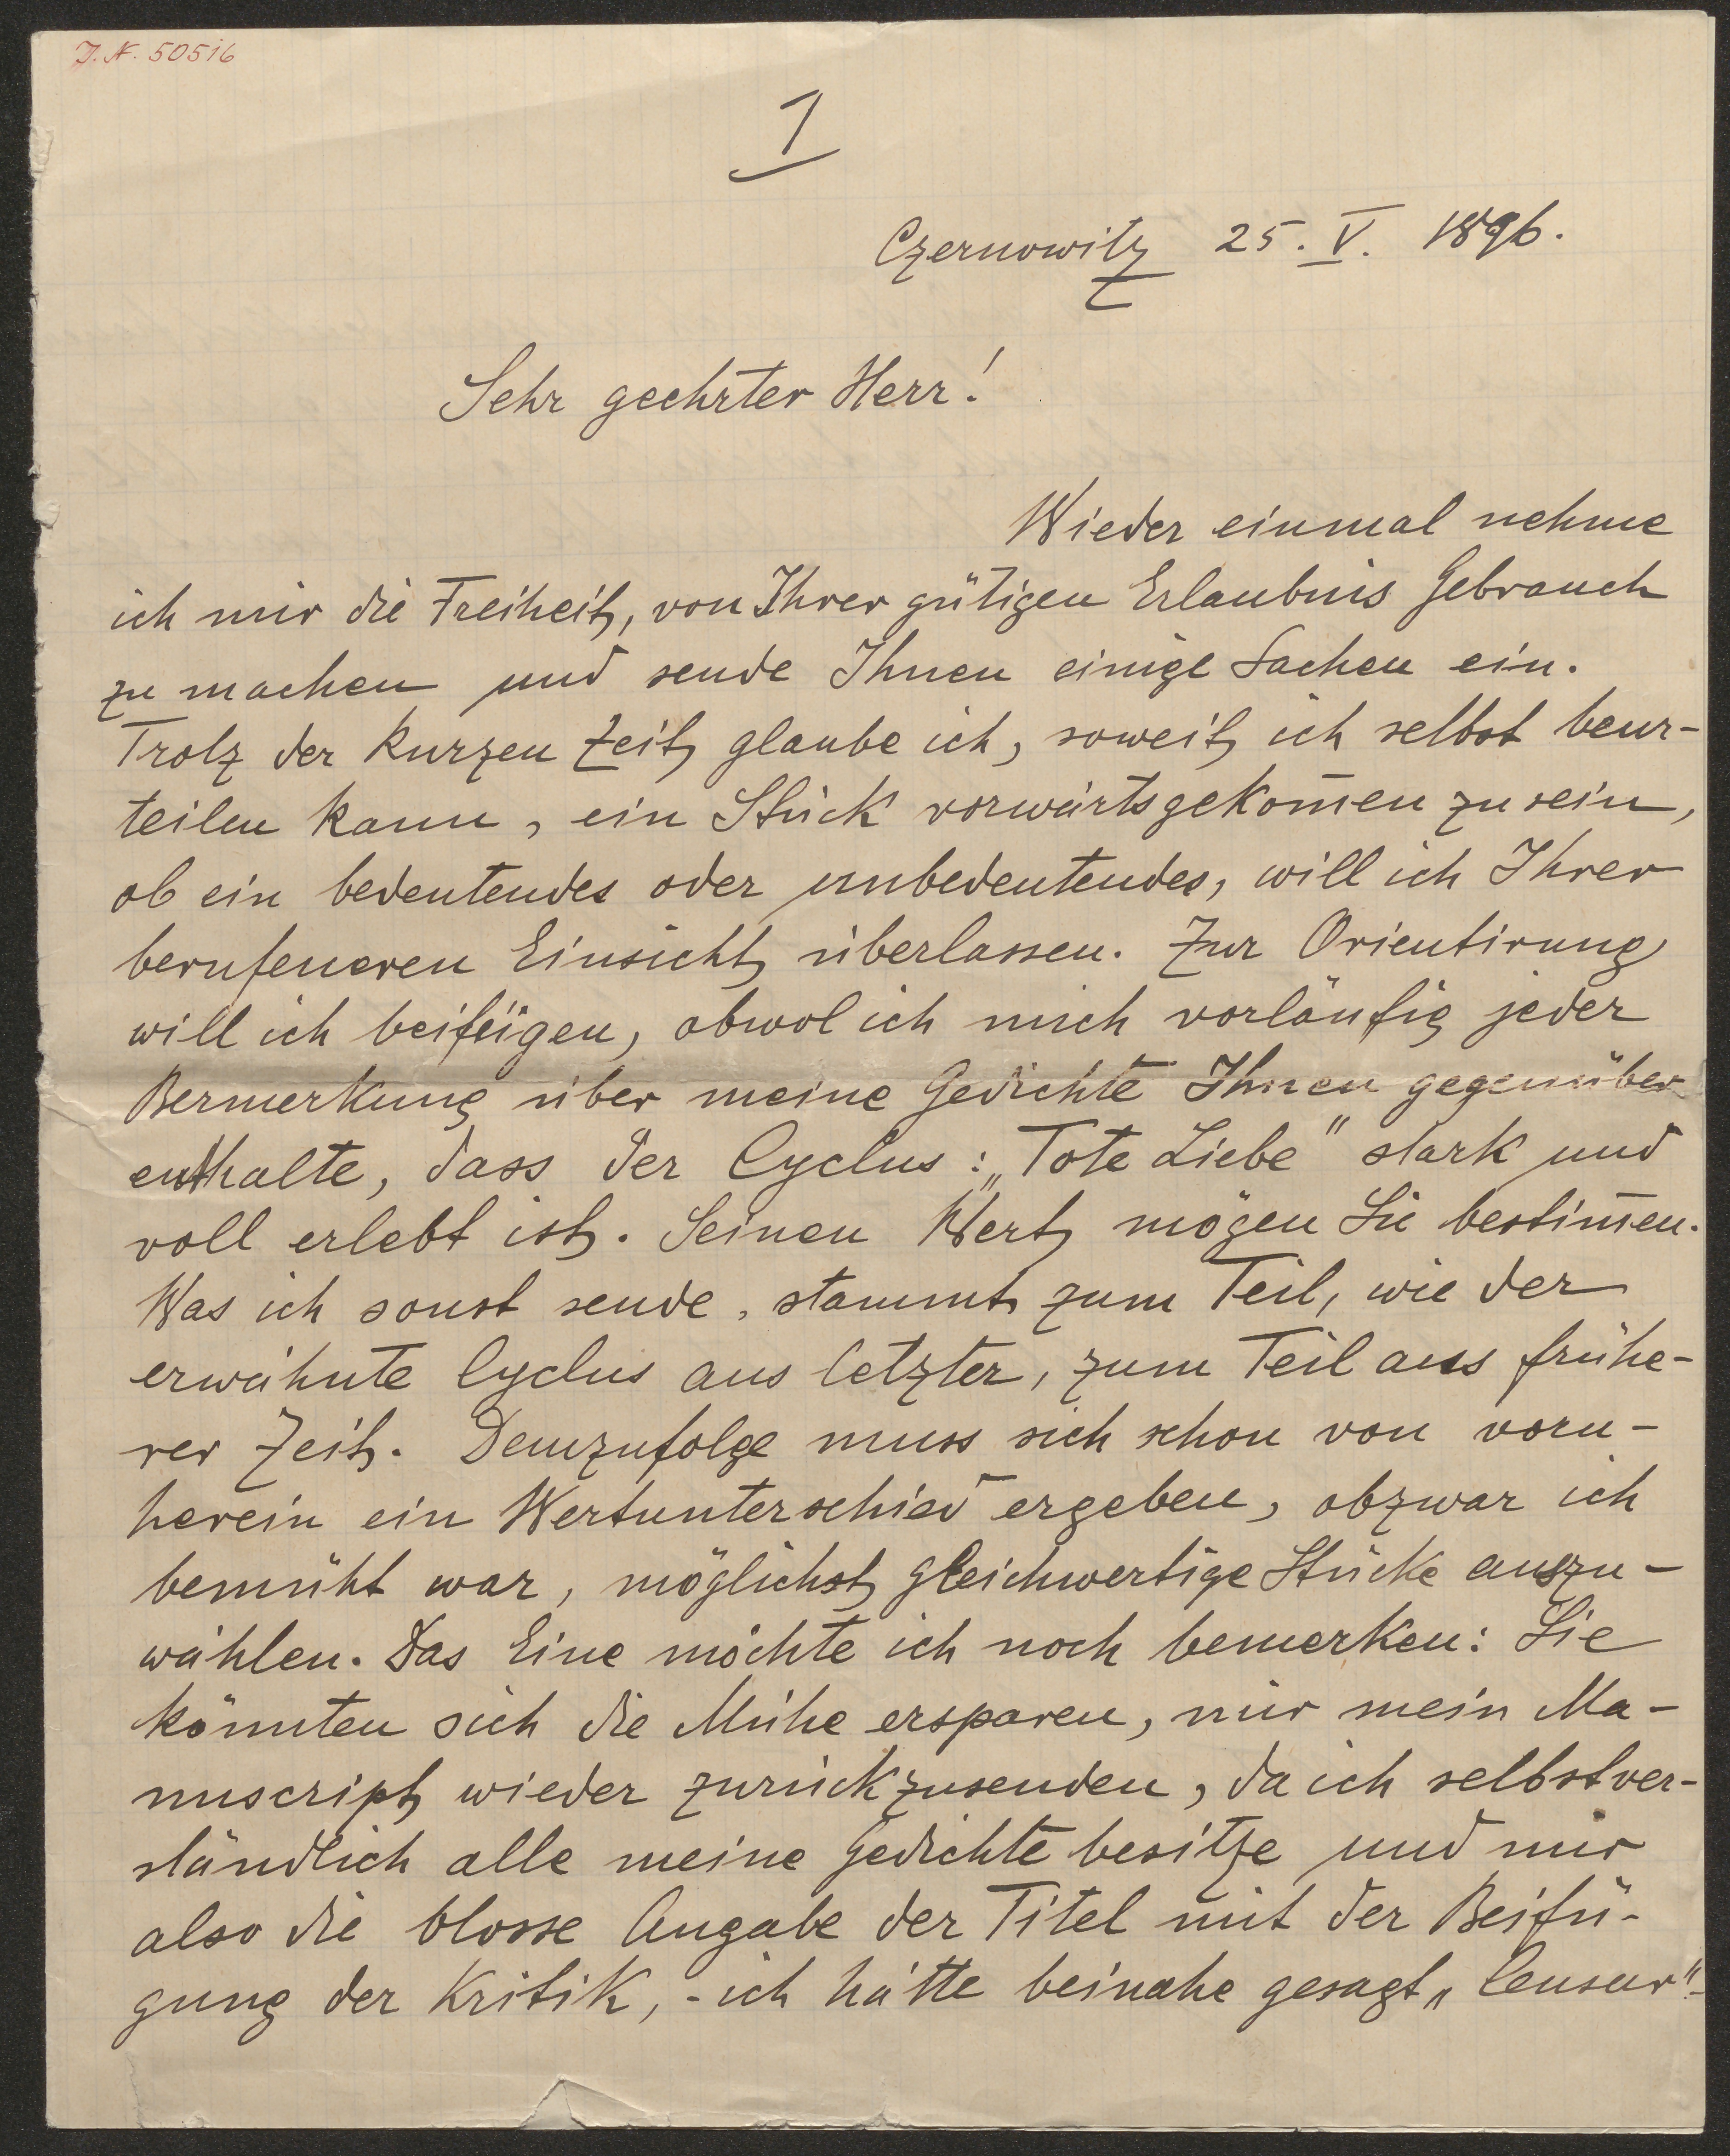 J. N. 50516
1
Czernowitz 25. V. 1896.
Sehr geehrter Herr!
Wieder einmal nehme
ich mir die Freiheit, von Ihrer gütigen Erlaubnis Gebrauch
zu machen und sende Ihnen einige Sachen ein.
Trotz der kurzen Zeit glaube ich, soweit ich selbst beur-
teilen kann, ein Stück vorwärtsgekom̄en zu sein,
ob ein bedeutendes oder unbedeutendes, will ich Ihrer
berufeneren Einsicht überlassen. Zur Orientirung
will ich beifügen, obwol ich mich vorläufig jeder
Bermerkung über meine Gedichte Ihnen gegenüber
enthalte, dass der Cyclus: „Tote Liebe" stark und
voll erlebt ist. Seinen Wert mögen Sie bestim̄en.
Was ich sonst sende, stammt zum Teil, wie der
erwähnte Cyclus aus letzter, zum Teil aus frühe-
rer Zeit. Demzufolge muss sich schon von vorn-
herein ein Wertunterschied ergeben, obzwar ich
bemüht war, möglichst gleichwertige Stücke auszu-
wählen. Das Eine möchte ich noch bemerken: Sie
könnten sich die Mühe ersparen, mir mein Ma-
nuscript wieder zurückzusenden, da ich selbstver-
ständlich alle meine Gedichte besitze und mir
also die blosse Angabe der Titel mit der Beifü-
gung der Kritik, - ich hätte beinahe gesagt „Censur"-